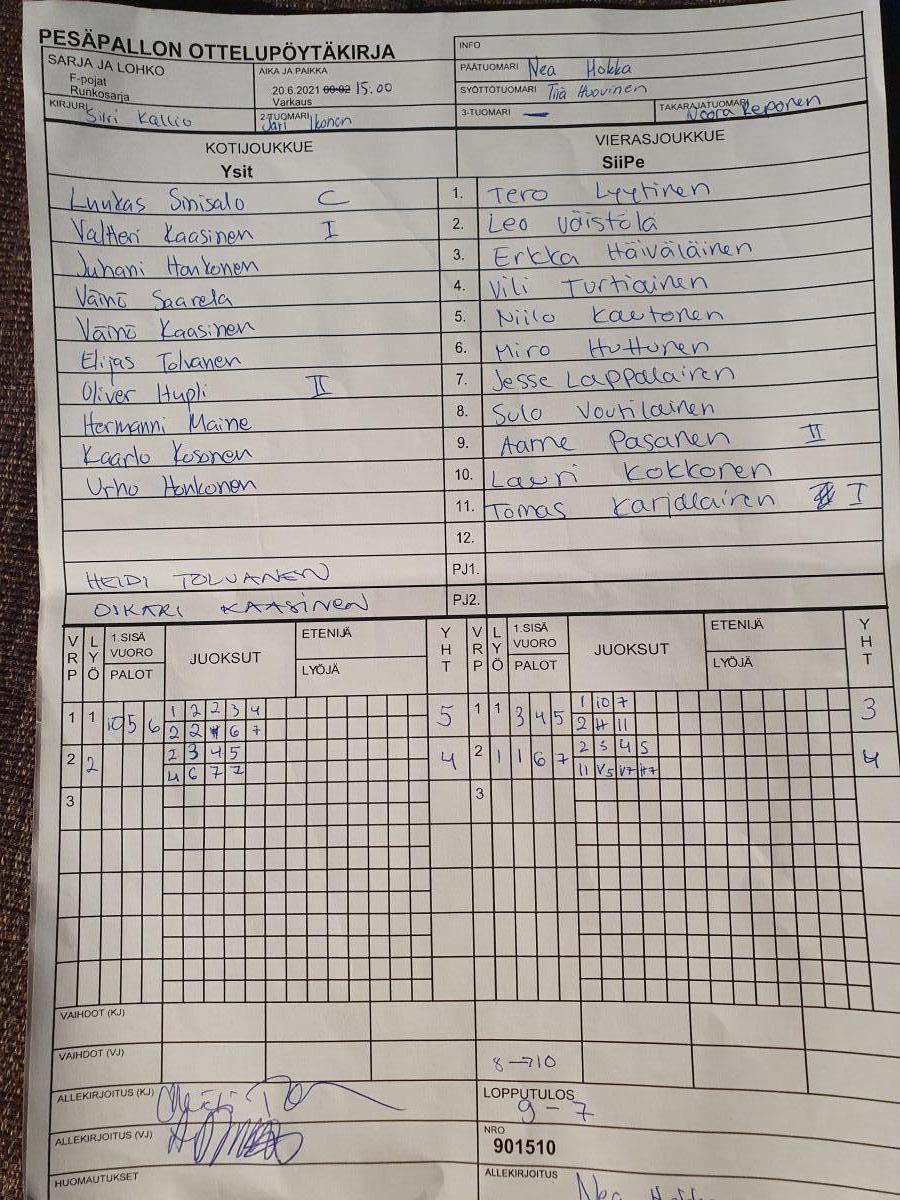 PESÄPALLON OTTELUPÖYTÄKIRJA
INFO
SARJA JA LOHKO
F-pojat
Runkosarja
AIKA JA PAIKKA
20.6.2021 00:02 15.00
Varkaus
PÄÄTUOMARI Nea Hokka
SYÖTTÖTUOMARI Tiia Huovinen
KIRJURI Silri Kallio
2-TUOMARI Jari Ikonen
3-TUOMARI —
TAKARAJATUOMARI Noora Reponen
KOTIJOUKKUE
Ysit
VIERASJOUKKUE
SiiPe
Luukas Sinisalo C 1. Tero Lyytinen
Valtteri Kaasinen I 2. Leo Väistölä
Juhani Honkonen 3. Erkka Häiväläinen
Väinö Saarela 4. Vili Turtiainen
Väinö Kaasinen 5. Niilo Kautonen
Elijas Tolvanen 6. Miro Huttunen
Oliver Hupli II 7. Jesse Lappalainen
Hermanni Maine 8. Sulo Voutilainen
Kaarlo Kosonen 9. Aarne Pasanen II
Urho Honkonen 10. Lauri Kokkonen
11. Tomas Karjalainen I
12.
HEIDI TOLVANEN PJ1.
OSKARI KAASINEN PJ2.
VRP LYÖ 1.SISÄ VUORO PALOT JUOKSUT ETENIJÄ LYÖJÄ YHT VRP LYÖ 1.SISÄ VUORO PALOT JUOKSUT ETENIJÄ LYÖJÄ YHT
1 1 10 5 6 1 2 2 3 4 5 1 1 3 4 5 1 10 7 3
2 2 4 6 7 2 H 11
2 2 2 3 4 5 4 2 1 1 6 7 2 3 4 5 4
4 6 7 7 11 V5 V7 H7
3 3
VAIHDOT (KJ)
VAIHDOT (VJ) 8→10
ALLEKIRJOITUS (KJ)
LOPPUTULOS
9 – 7
ALLEKIRJOITUS (VJ)
NRO
901510
HUOMAUTUKSET
ALLEKIRJOITUS
Nea